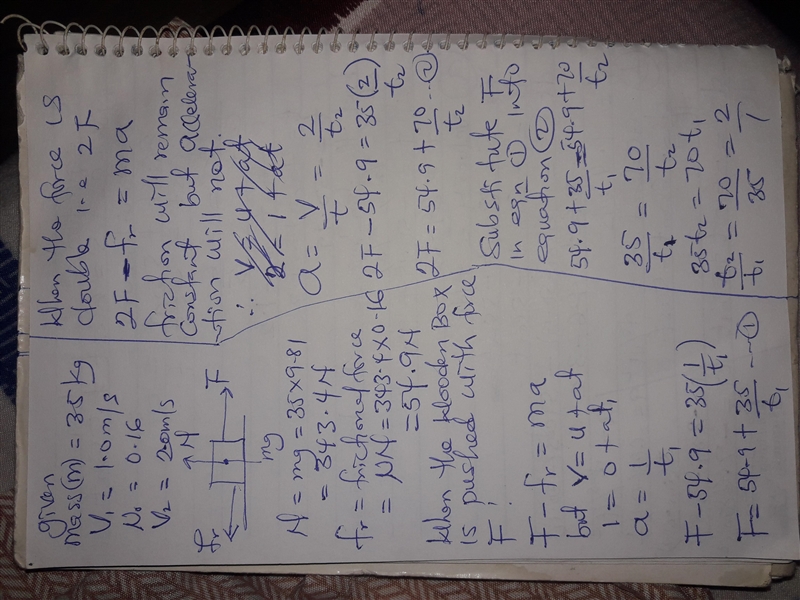 given
mass(m) = 35kg
V₁ = 1.0m/s
N₀ = 0.16
V₂ = 2.0m/s
N
fr
F
mg
N = mg = 35×9.81
= 343.4N
fr = friction of force
= NN = 343.4×0.16
= 54.9N
When the wooden Box
is pushed with force
F;
F - fr = ma
but V = u + at
1 = 0 + at₁
a = 1/t₁
F - 54.9 = 35(1/t₁)
F = 54.9 + 35/t₁ --- ①
When the force is
double i.e 2F
2F - fr = ma
friction will remain
constant but accelera-
tion will not.
∴ V = u + at
2 = 1 + at
a = V/t = 2/t₂
2F - 54.9 = 35(2/t₂)
2F = 54.9 + 70/t₂ -- ②
Substitute F
in eqn ① into
equation ②
54.9 + 35/t₁ = 54.9 + 70/t₂
35/t₁ = 70/t₂
35t₂ = 70t₁
t₂/t₁ = 70/35 = 2/1